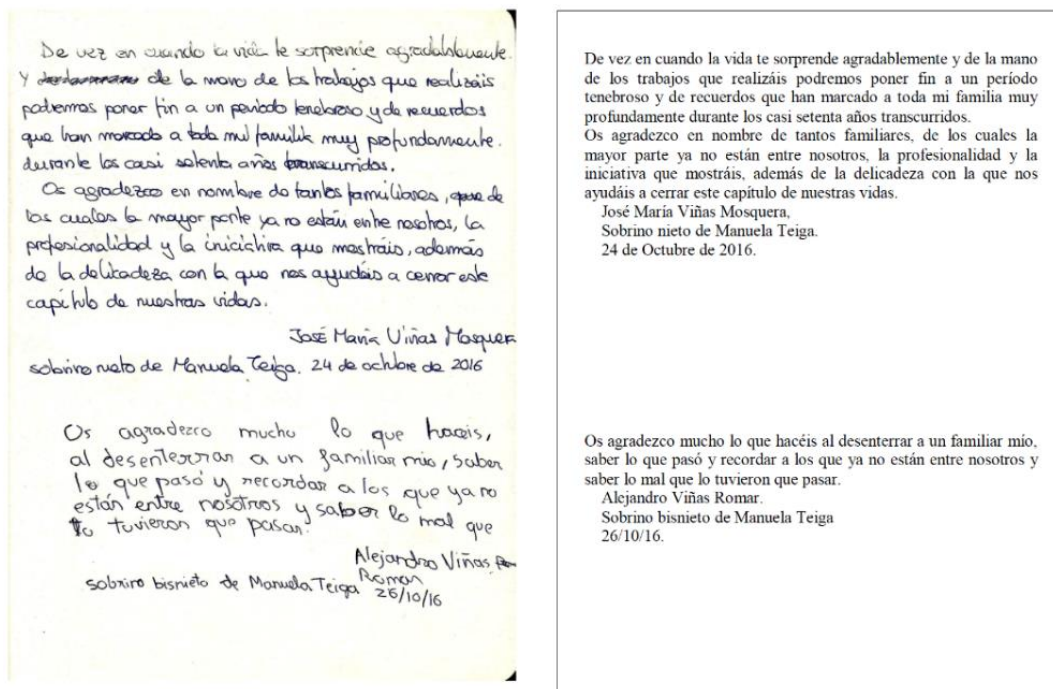 De vez en cuando la vida te sorprende agradablemente.
Y de la mano de los trabajos que realizáis
podremos poner fin a un período tenebroso y de recuerdos
que han marcado a toda mi familia muy profundamente.
durante los casi setenta años transcurridos.
Os agradezco en nombre de tantos familiares, de
los cuales la mayor parte ya no están entre nosotros, la
profesionalidad y la iniciativa que mostráis, además
de la delicadeza con la que nos ayudáis a cerrar este
capítulo de nuestras vidas.
José María Viñas Mosquera
sobrino nieto de Manuela Teiga. 24 de octubre de 2016
Os agradezco mucho lo que haceis,
al desenterrar a un familiar mio, saber
lo que pasó y recordar a los que ya no
están entre nosotros y saber lo mal que
lo tuvieron que pasar.
Alejandro Viñas
Romar
sobrino bisnieto de Manuela Teiga 26/10/16
De vez en cuando la vida te sorprende agradablemente y de la mano
de los trabajos que realizáis podremos poner fin a un período
tenebroso y de recuerdos que han marcado a toda mi familia muy
profundamente durante los casi setenta años transcurridos.
Os agradezco en nombre de tantos familiares, de los cuales la
mayor parte ya no están entre nosotros, la profesionalidad y la
iniciativa que mostráis, además de la delicadeza con la que nos
ayudáis a cerrar este capítulo de nuestras vidas.
José María Viñas Mosquera,
Sobrino nieto de Manuela Teiga.
24 de Octubre de 2016.
Os agradezco mucho lo que hacéis al desenterrar a un familiar mío,
saber lo que pasó y recordar a los que ya no están entre nosotros y
saber lo mal que lo tuvieron que pasar.
Alejandro Viñas Romar.
Sobrino bisnieto de Manuela Teiga
26/10/16.